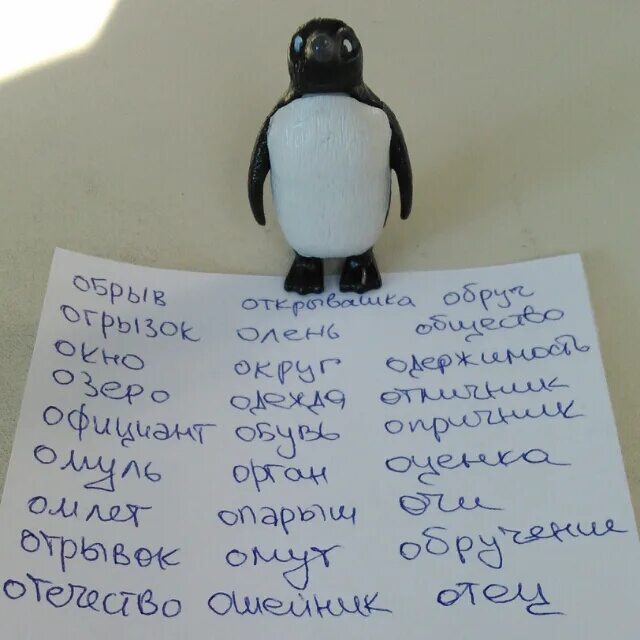 обрыв открывашка обруч
огрызок олень общество
окно округ одержимость
озеро одежда отличник
официант обувь опричник
омуль орган оценка
омлет опарыш очи
отрывок омут обручение
отечество ошейник отец